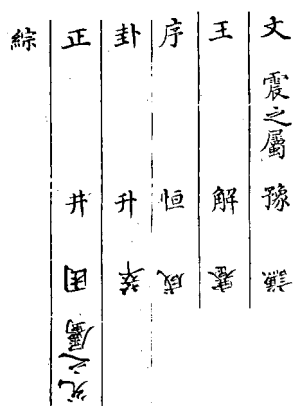 文 震之屬 豫 謙
王 解 蹇
序 恒 咸
卦 升 萃
正 井 困 兌之屬
綜